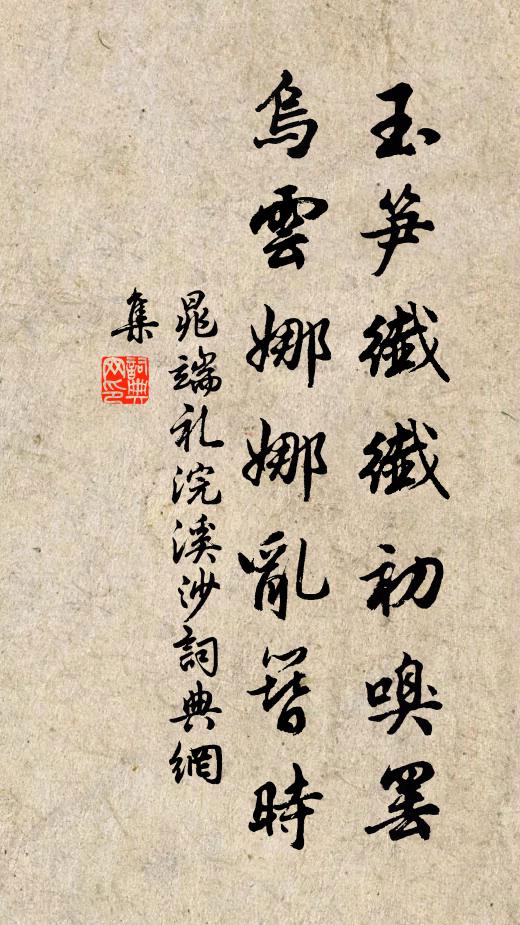 玉笋纖纖初嗅罢
烏雲娜娜亂簪時
晁端礼浣溪沙詞典網
集
詞典
网印